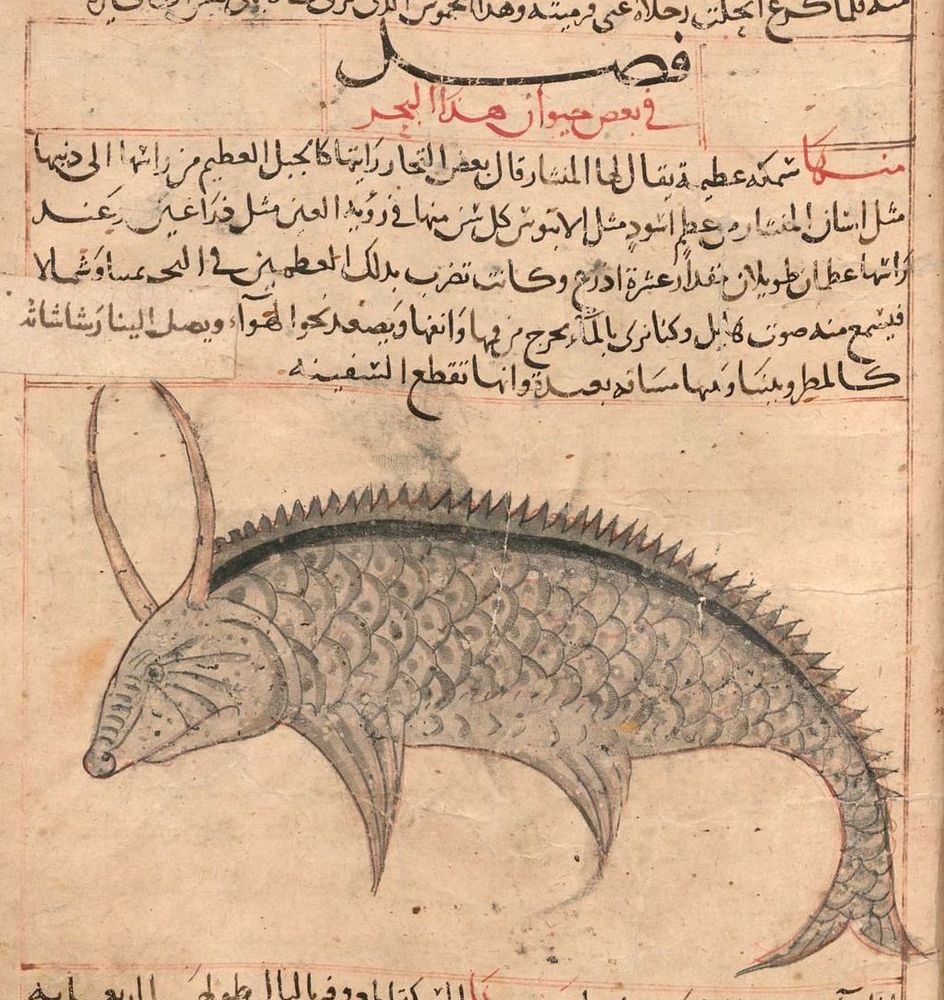 منه فلما كرع انحلت رجلاه عني فرميته وهذا
فصل
في بعض حيوان هذا البحر
منها سمكة عظيمة يقال لها المنشار قال بعض التجار رايتها كالجبل العظيم من راسها الى ذنبها
مثل اسنان المنشار من عظم اسود مثل الابنوس كل سن منها في رؤية العين مثل ذراعين وعند
راسها عظمان طويلان مقدار عشرة اذرع وكانت تضرب بذلك العظمين في البحر يمينا وشمالا
فيسمع منه صوت هايل وكنا نرى بالماء يخرج من فيها وانفها ويصعد نحو الهواء ويصل الينا رشاشاته
كالمطر وبيننا وبينها مسافة بعيدة وانها تقطع السفينة